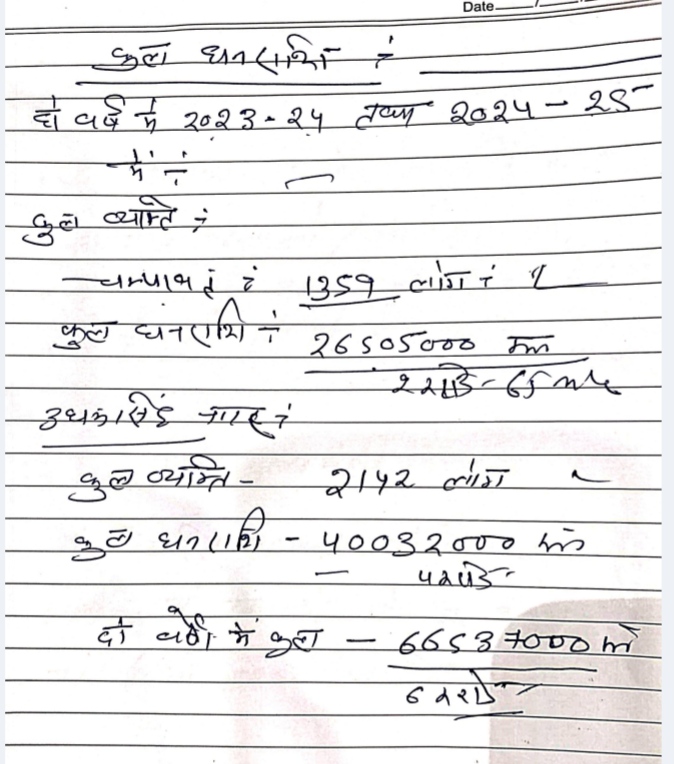 Date
कुल धनराशि ÷
दो वर्ष में 2023-24 तथा 2024-25
में ÷
कुल व्यक्ति ÷
1359 लोग ÷
कुल धनराशि ÷ 26505000
2 करोड़ - 65
नगर ÷
कुल व्यक्ति - 2142 लोग
कुल धनराशि - 40032000
4 करोड़
दो वर्षो में कुल - 66537000
6 करोड़